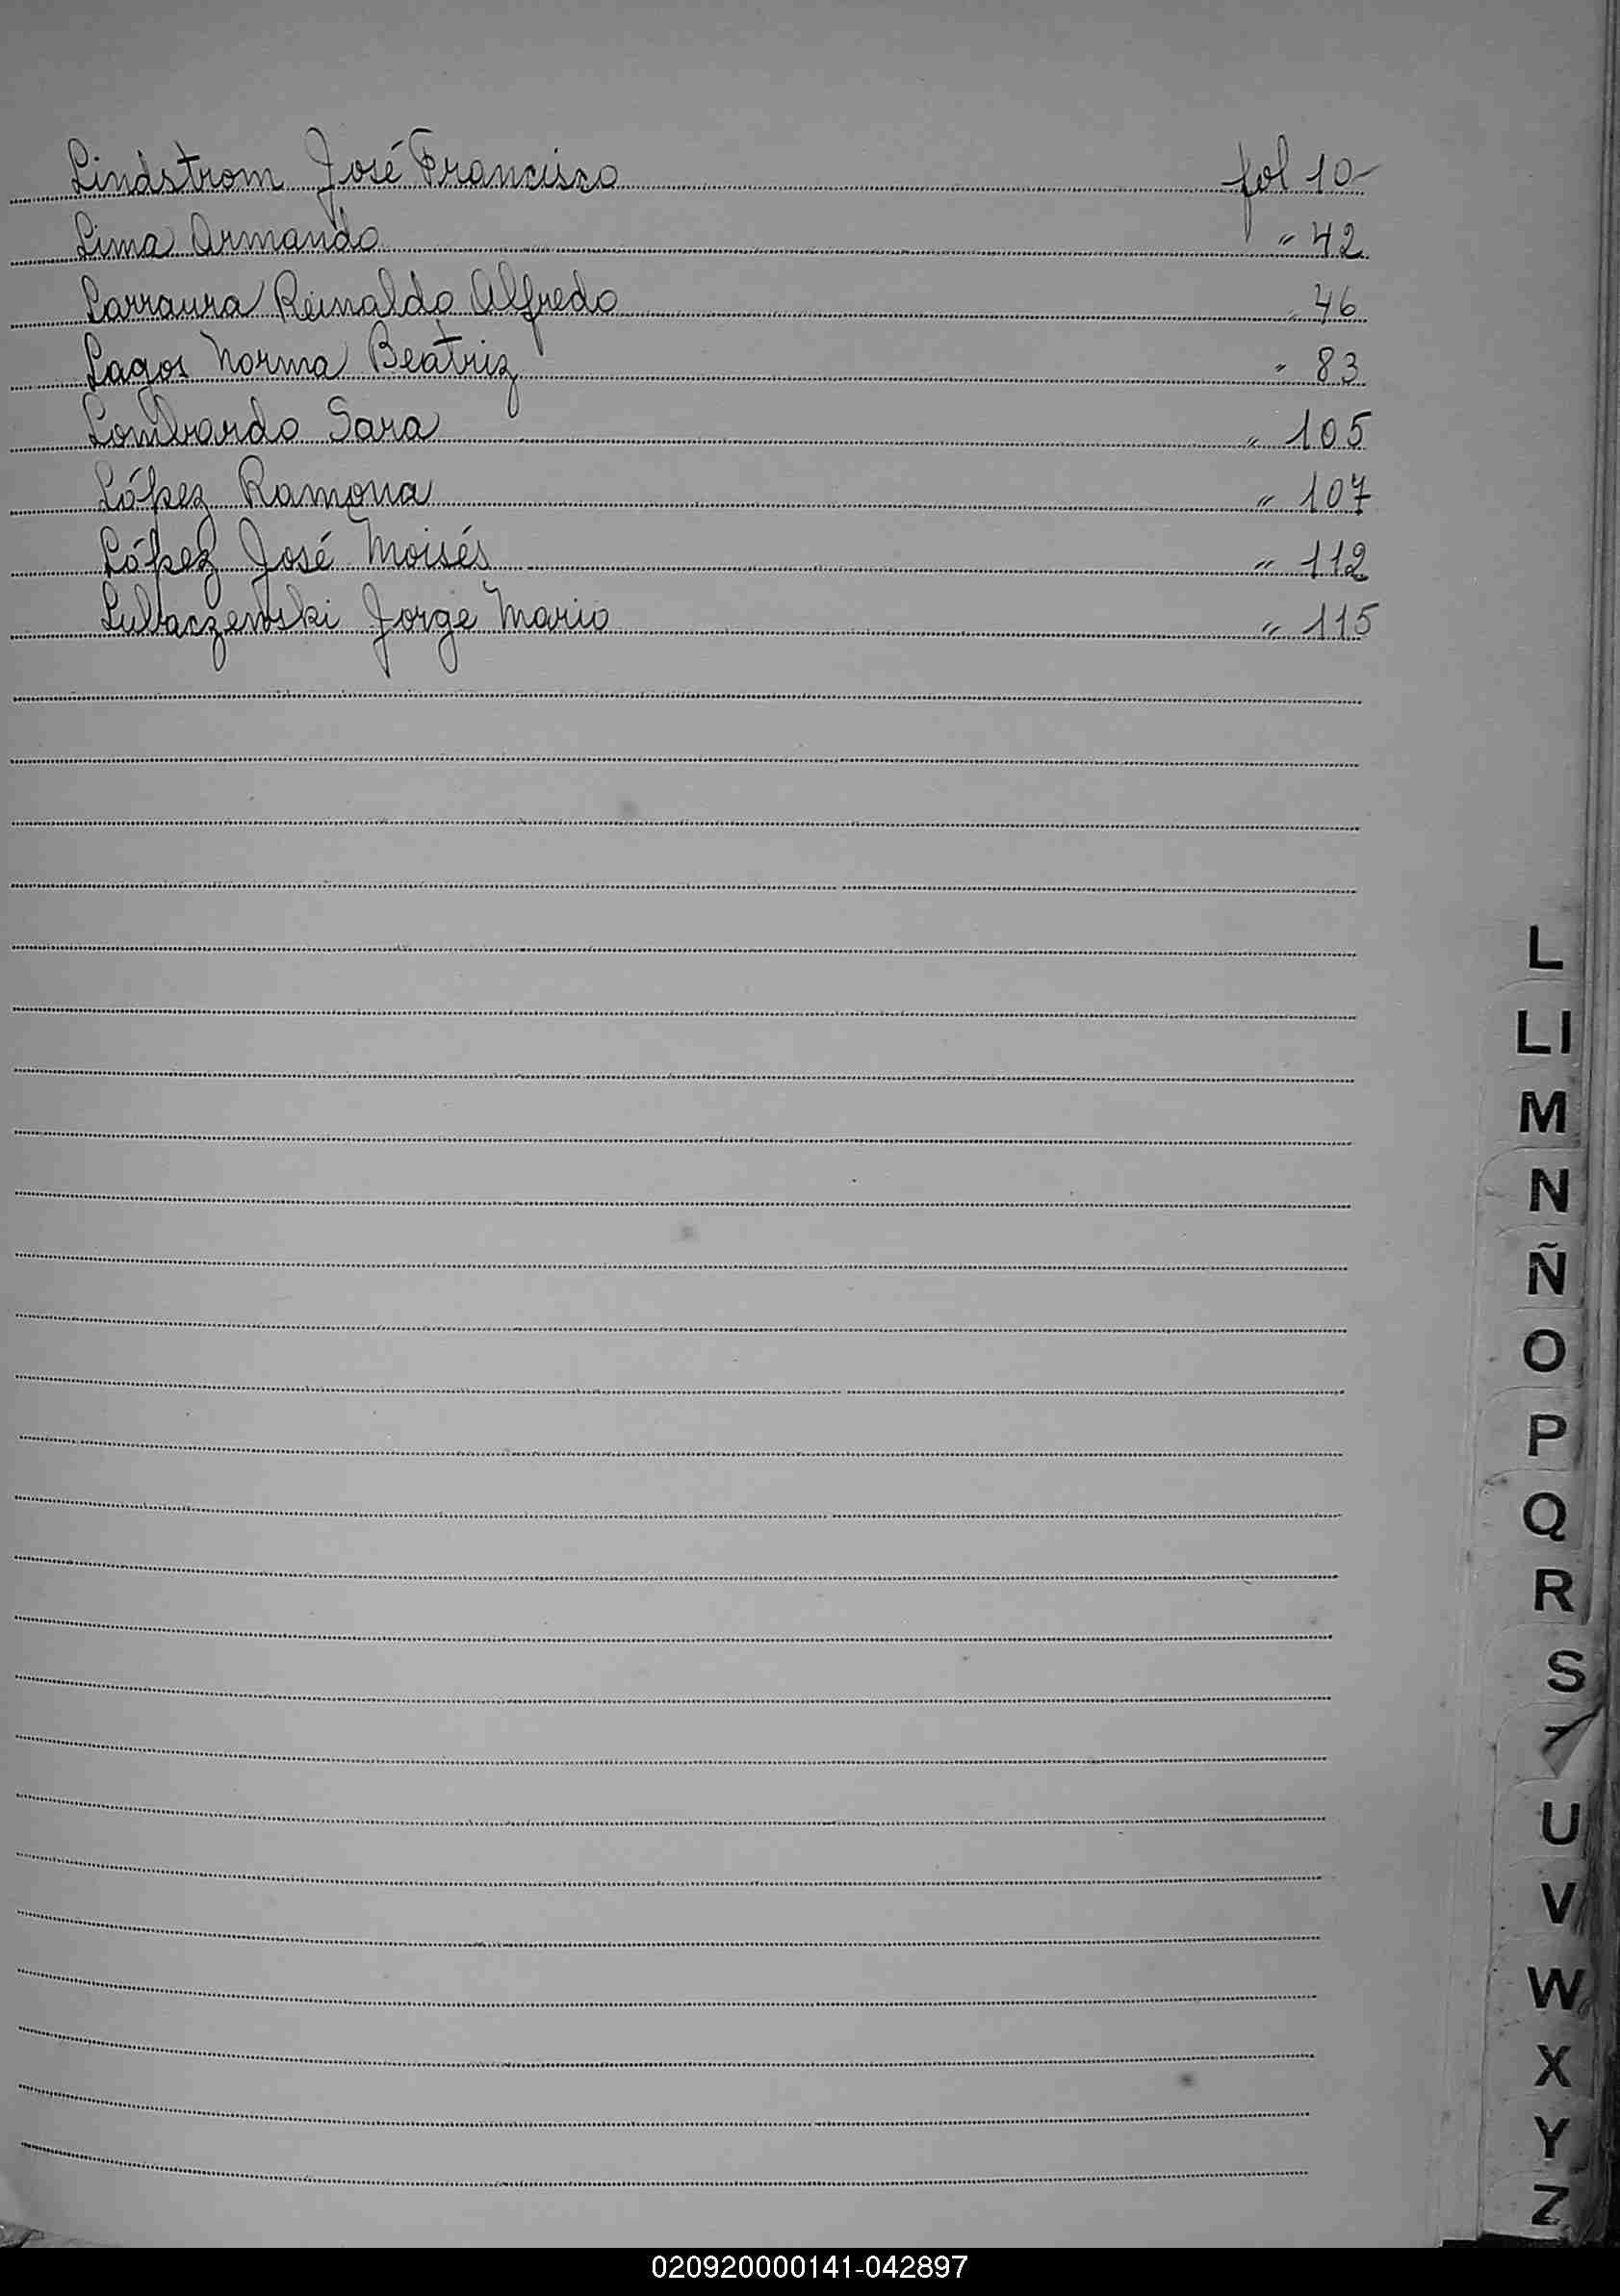 Lindstrom José Francisco fol 10-
Lima Armando " 42
Larraura Reinaldo Alfredo " 46
Lagos Norma Beatriz " 83
Lombardo Sara " 105
López Ramona " 107
López José Moisés " 112
Lubaczewski Jorge Mario " 115
L
Ll
M
N
Ñ
O
P
Q
R
S
T
U
V
W
X
Y
Z
020920000141-042897